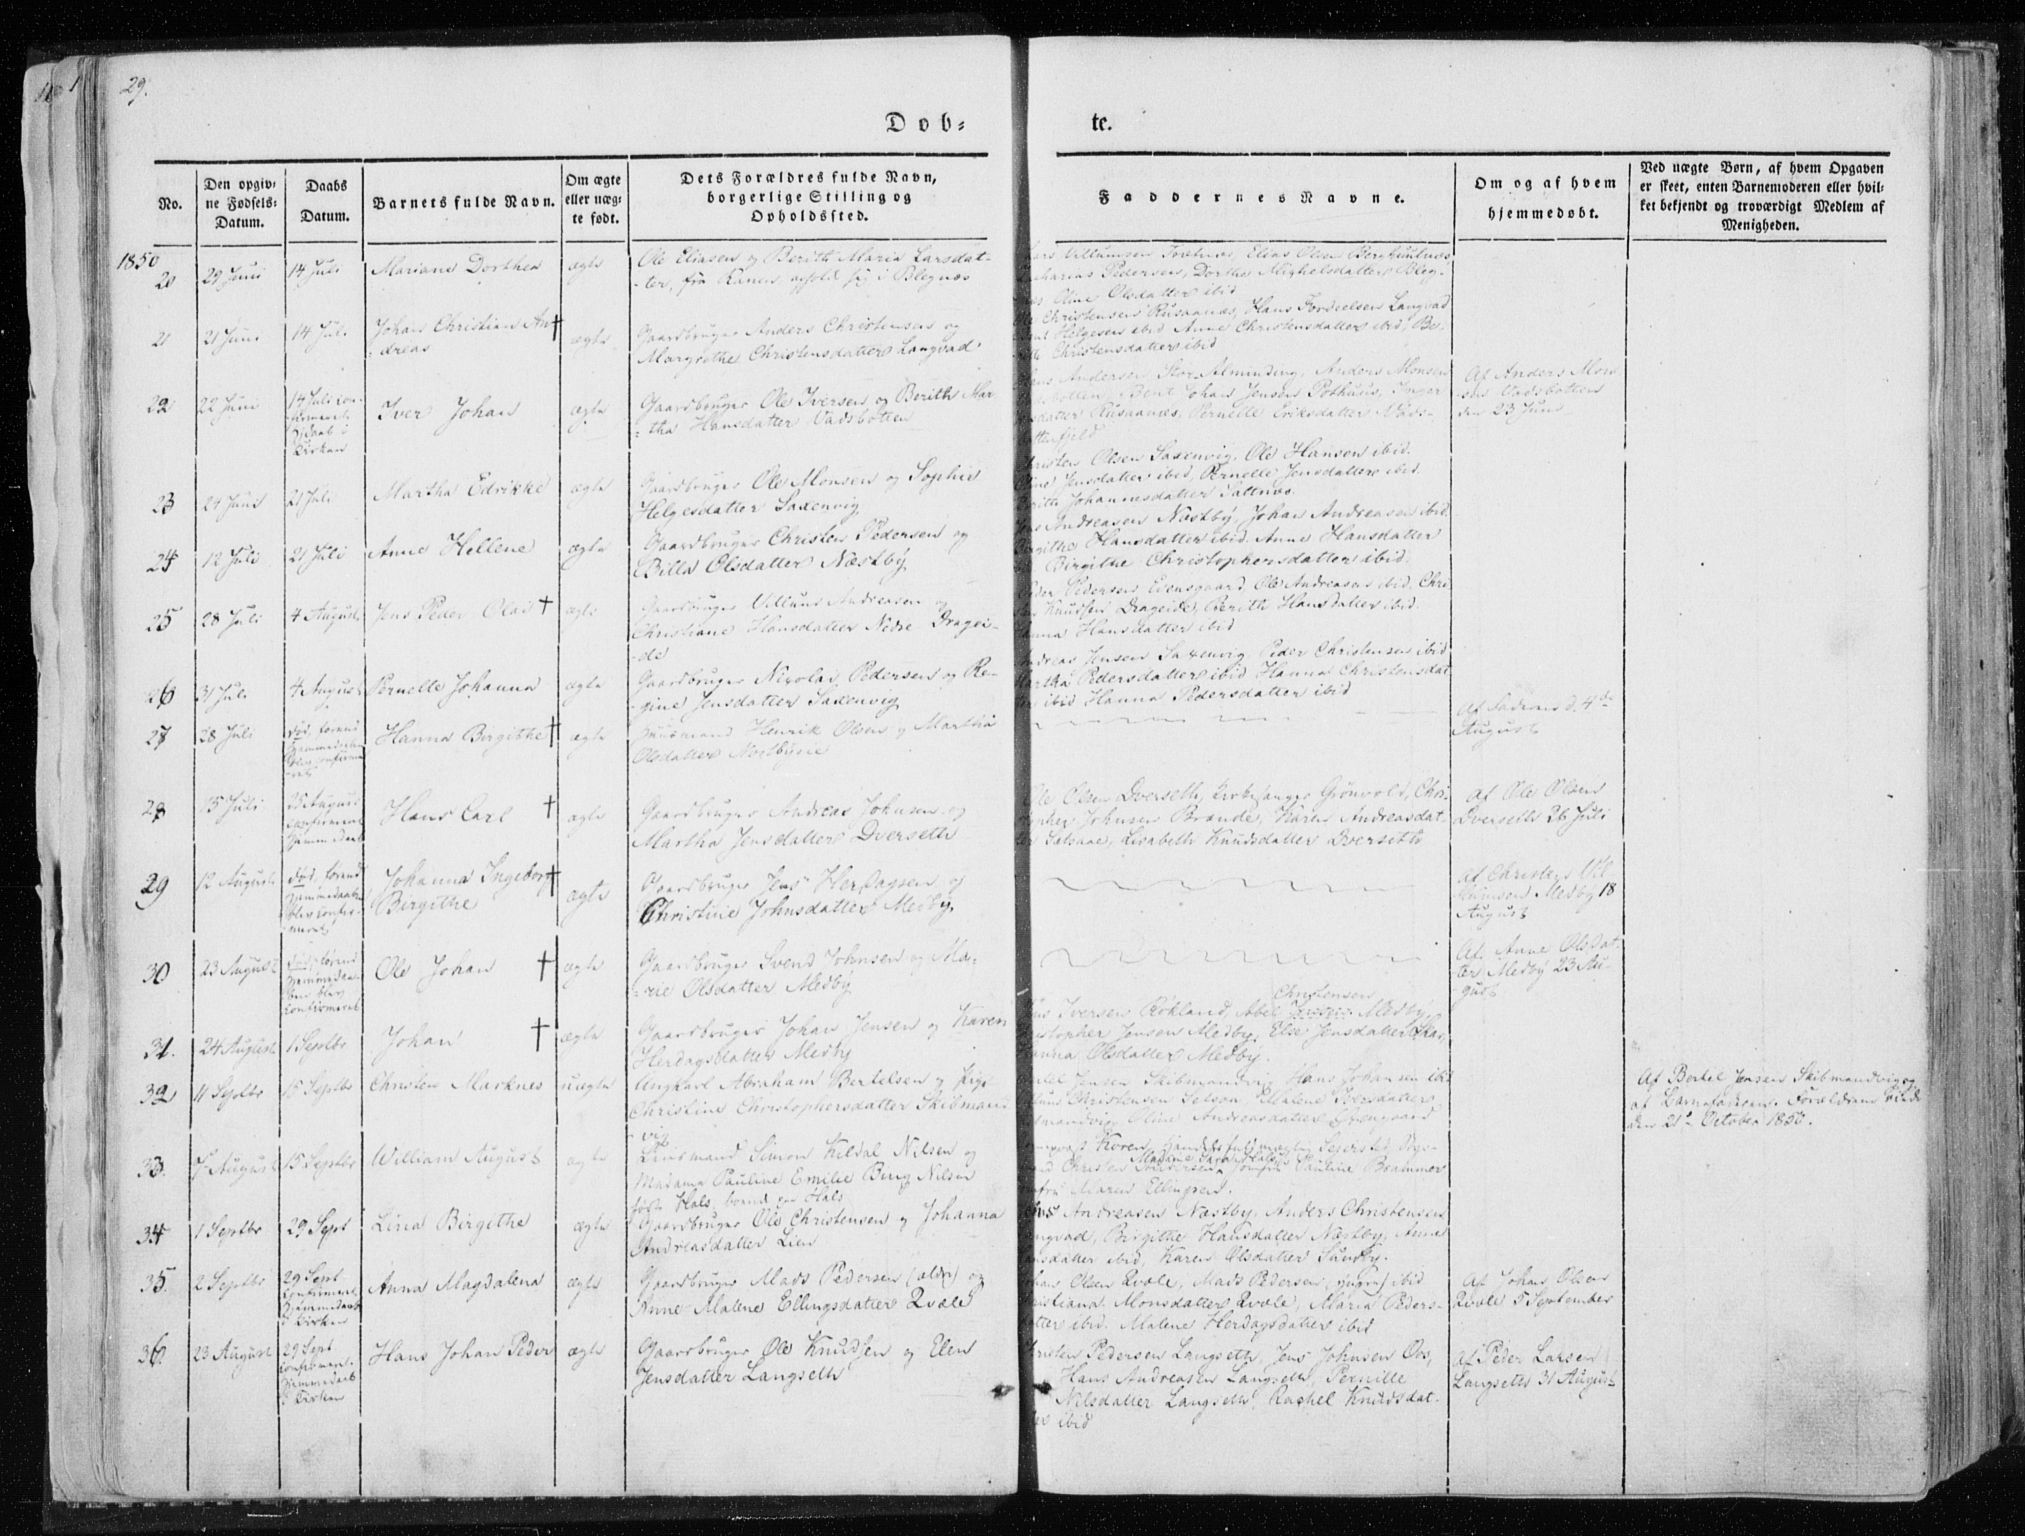 29.
Dob=
te.
No.
Den opgiv=
ne Fødsels=
Datum.
Daabs
Datum.
Barnets fulde Navn.
Om ægte
eller uæg=
te født.
Dets Forældres fulde Navn,
borgerlige Stilling og
Opholdssted.
Faddernes Navne.
Om og af hvem
hjemmedøbt.
Ved uægte Børn, af hvem Opgaven
er skeet, enten Barnemoderen eller hvil=
ket bekjendt og troværdigt Medlem af
Menigheden.
1850
20
29 Juni
14 Juli
Mariane Dorthea
ægte
Ole Eliasen og Berith Maria Larsdat-
-ter, fra Ranen ophold sig i Blegnæs
Villumsen Elias Olsen
Pedersen, Dorthea Mighelsdatter
Oline Olsdatter ibid
21
21 Juni
14 Juli
Johan Christian An †
dreas
ægte
Gaardbruger Anders Christensen og
Margrethe Christensdatter Langvad
Christensen Rusaanæs, Hans Langvad
Helgesen ibid Anne Christensdatter ibid, Be-
Christensdatter ibid
22
22 Juni
14 Juli con-
firmeret
i
Kirken
Iver Johan
ægte
Gaardbruger Ole Iversen og Berith Mar
=tha Hansdatter Vadsbotten
Andersen Stor Alminding, Anders Monsen
Bent Johan Jensen Pothuus, Inger
Rusaanæs, Pernelle Eriksdatter
Af Anders Mon
-sen Vadsbotten
den 23 Juni
23
24 Juni
21 Juli
Martha Edrikke
ægte
Gaardbruger Ole Monsen og Sophie
Helgesdatter Saxenvig
Olsen Saxenvig, Ole Hansen ibid.
Jensdatter ibid, Pernelle Jensdatter ibid.
Johannesdatter Saltnæs
24
12 Juli
21 Juli
Anne Hellene
ægte
Gaardbruger Christen Pedersen og
Billa Olsdatter Næstby
Andreasen Næstby, Johan Andreasen ibid
Hansdatter ibid. Anne Hansdatter
Birgithe Christophersdatter ibid.
25
28 Juli
4 August
Jens Peder Olai †
ægte
Gaardbruger Villum Andreasen og
Christiane Hansdatter Nedre Dragei-
-de
Pedersen Evensgaard Ole Andreasen ibid. Chri
Knudsen Drageide, Berith Hansdatter ibid.
Hansdatter ibid
26
31 Juli
4 August
Pernelle Johanna
ægte
Gaardbruger Nicolai Pedersen og Re-
-gine Jensdatter Saxenvig
Jensen Saxenvig, Peder Christensen ibid
Pedersdatter ibid Hanna Christensdat
ibid Hanna Pedersdatter ibid
27
28 Juli
død, førend
hjemmedaaben
blev confirme
-ret
Hanna Birgithe †
ægte
Huusmand Henrik Olsen og Martha
Olsdatter Næstbyeie
Af Faderen d. 4de
August
28
15 Juli
25 August
confirmeret
hjemmedaab
Hans Carl †
ægte
Gaardbruger Andreas Johnsen og
Martha Jensdatter Dverseth
Ole Olsen Dverseth, Kirkesanger Grönvold, Chri-
Johnsen Brande, Karen Andreasdat-
Saltaae, Lisabeth Knudsdatter Dverseth
Af Ole Olsen
Dverseth 26 Juli
29
12 August
død, førend
hjemmedaaben
blev confir-
meret
Johanna Ingeborg †
Birgithe
ægte
Gaardbruger Jens Herdagsen og
Christine Johnsdatter Medby
af Christen Vil-
-lumsen Medby 18
August
30
23 August
død, førend
hjemmedaa-
ben blev
confirmeret
Ole Johan †
ægte
Gaardbruger Svend Johnsen og Ma-
-rie Olsdatter Medby
Af. Anne Olsdat
ter Medby 23 Au-
gust
31.
24 August
1 Septbr
Johan †
ægte
Gaardbruger Johan Jensen og Karen
Herdagsdatter Medby
Christensen
Iversen Røkland, Abel Medby,
Christopher Jensen Medby, Else Jensdatter
Hanna Olsdatter Medby.
32
11 Septbr
15 Septbr
Christen Marknes
uægte
Ungkarl Abraham Bertelsen og Pige
Christine Christophersdatter Skibmand
vig
Jensen Skibmandvig Hans Johansen ibid
Christensen Setsaa, Malene Pedersdatter
Skibmandvig Oline Andreasdatter Evensgaard
Af Bertel Jensen Skibmandvig og
af Barnefaderen. Forældrene viede
den 21de October 1850.
33.
7 August
15 Septbr
William August
ægte
Lensmand Simon Kildal Nilsen og
Madame Pauline Emilie Bing Nilsen
født Hals, boende paa Hals
Koren, Handelsfuldmægtig Sejersted
Christen Andersen Jomfru Pauline Brammer
Maren Ellingsen.
34
1 Septbr
29 Sept
Lina Birgithe
ægte
Gaardbruger Ole Christensen og Johanna
Andreasdatter Lien
Andreasen Næstby, Anders Christensen
Langvad, Birgithe Hansdatter Næstby, Anne
ibid, Karen Olsdatter Sundby.
35.
2 Septbr
29 Sept
confirmeret
hjemmedaab
i Kirken
Anna Magdalena
ægte
Gaardbruger Mads Pedersen (ældr) og
Anne Malene Ellingsdatter Qvale
Johan Olsen Qvale, Mads Pedersen (yngre) ibid
Christiana Monsdatter Qvale, Maria Peders-
datter ibid. Malene Herdagsdatter ibid
Af Johan Olsen
Qvale 5 September
36
23 August
29 Sept
confirmeret
hjemmedaab
i Kirken
Hans Johan Peder
ægte
Gaardbruger Ole Knudsen og Elen
Jensdatter Langseth
Christen Pedersen Langseth, Jens Johnsen Oos,
Hans Andreasen Langseth, Pernille
Nilsdatter Langseth, Rachel Knudsdat-
ter ibid
Af Peder Larsen
Langseth 31 August